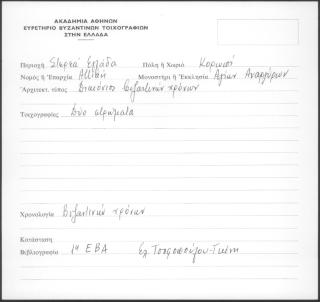 ΑΚΑΔΗΜΙΑ ΑΘΗΝΩΝ
ΕΥΡΕΤΗΡΙΟ ΒΥΖΑΝΤΙΝΩΝ ΤΟΙΧΟΓΡΑΦΙΩΝ
ΣΤΗΝ ΕΛΛΑΔΑ
Περιοχή Στερεά Ελλάδα Πόλη ή Χωριό Κορωπί
Νομός ή Ἐπαρχία Αττική Μοναστήρι ή Ἐκκλησία Αγίων Αναργύρων
Ἀρχιτεκτ. τύπος Βυζαντινών χρόνων
Τοιχογραφίες Δύο στρώματα
Χρονολογία Βυζαντινών χρόνων
Κατάσταση
Βιβλιογραφία 1η ΕΒΑ Ελ.